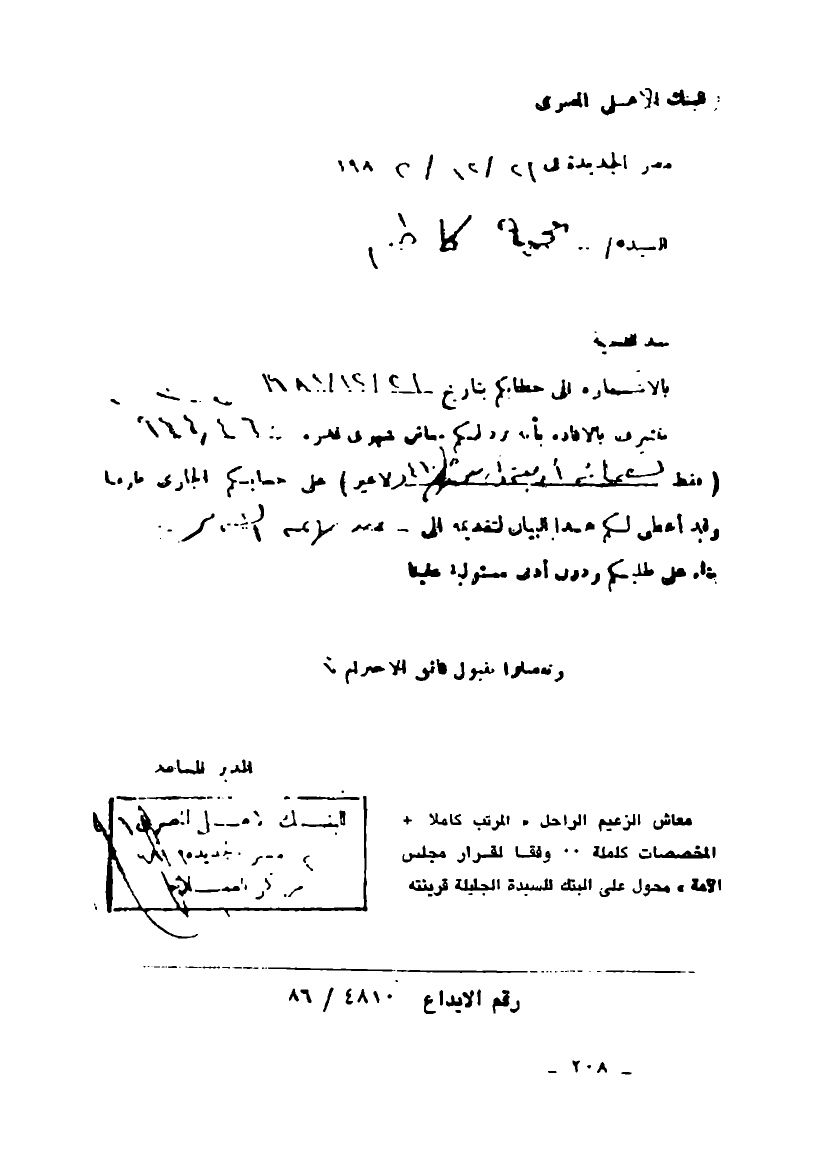 البنك الاهلي المصرى
مصر الجديدة فى ٢١ / ١٢ / ١٩٨٢
السيدة / .. تحية كاظم
بعد التحية
بالاشاره الى خطابكم بتاريخ ٢١/١٢/
نتشرف بالافاده بأنه يرد لكم معاش شهرى قدره
( فقط لاغير ) على حسابكم الجارى طرفنا
وقد أعطى لكم هذا البيان لتقديمه الى -
بناء على طلبكم ودون أدنى مسئولية علينا
وتفضلوا بقبول فائق الاحترام ،
المدير المساعد
البنك الاهلى المصرى
مصر الجديدة
معاش الزعيم الراحل ، المرتب كاملا +
المخصصات كاملة ٠٠ وفقا لقرار مجلس
الأمة ، محول على البنك للسيدة الجليلة قرينته
رقم الايداع ٤٨١٠ / ٨٦
_ ٢٠٨ _